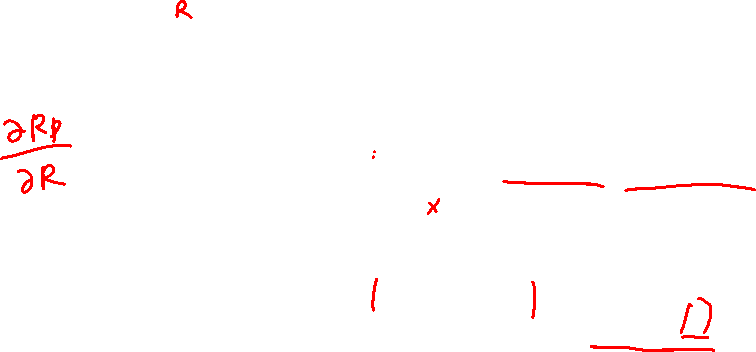 R
∂Rp
∂R
x